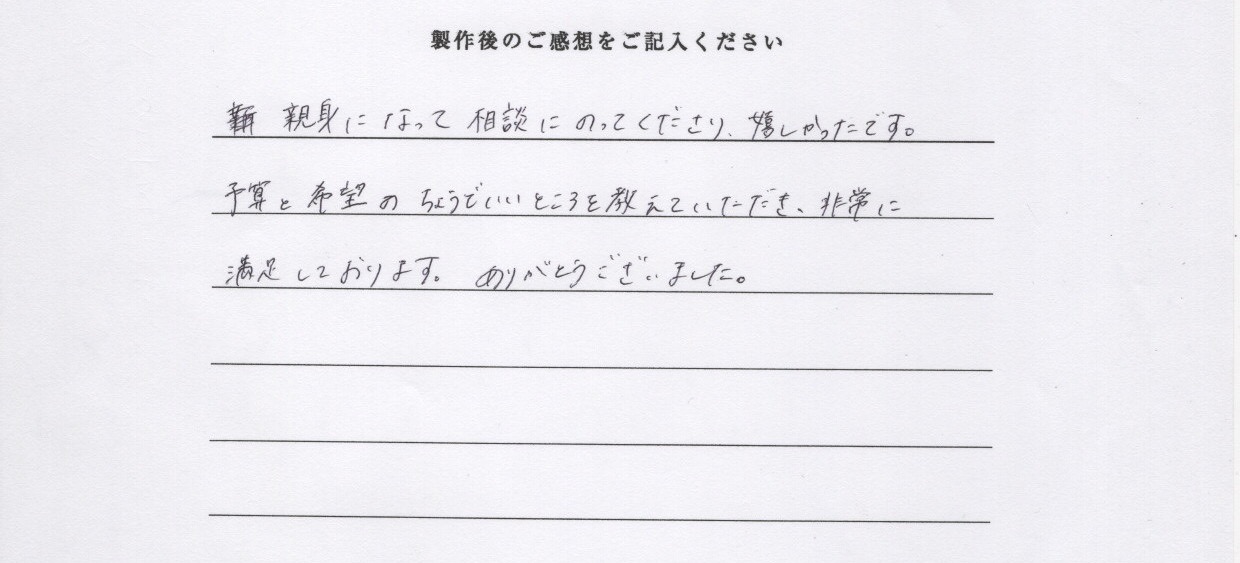 製作後のご感想をご記入ください
親身になって相談にのってくださり、嬉しかったです。
予算と希望のちょうどいいところを教えていただき、非常に
満足しております。ありがとうございました。